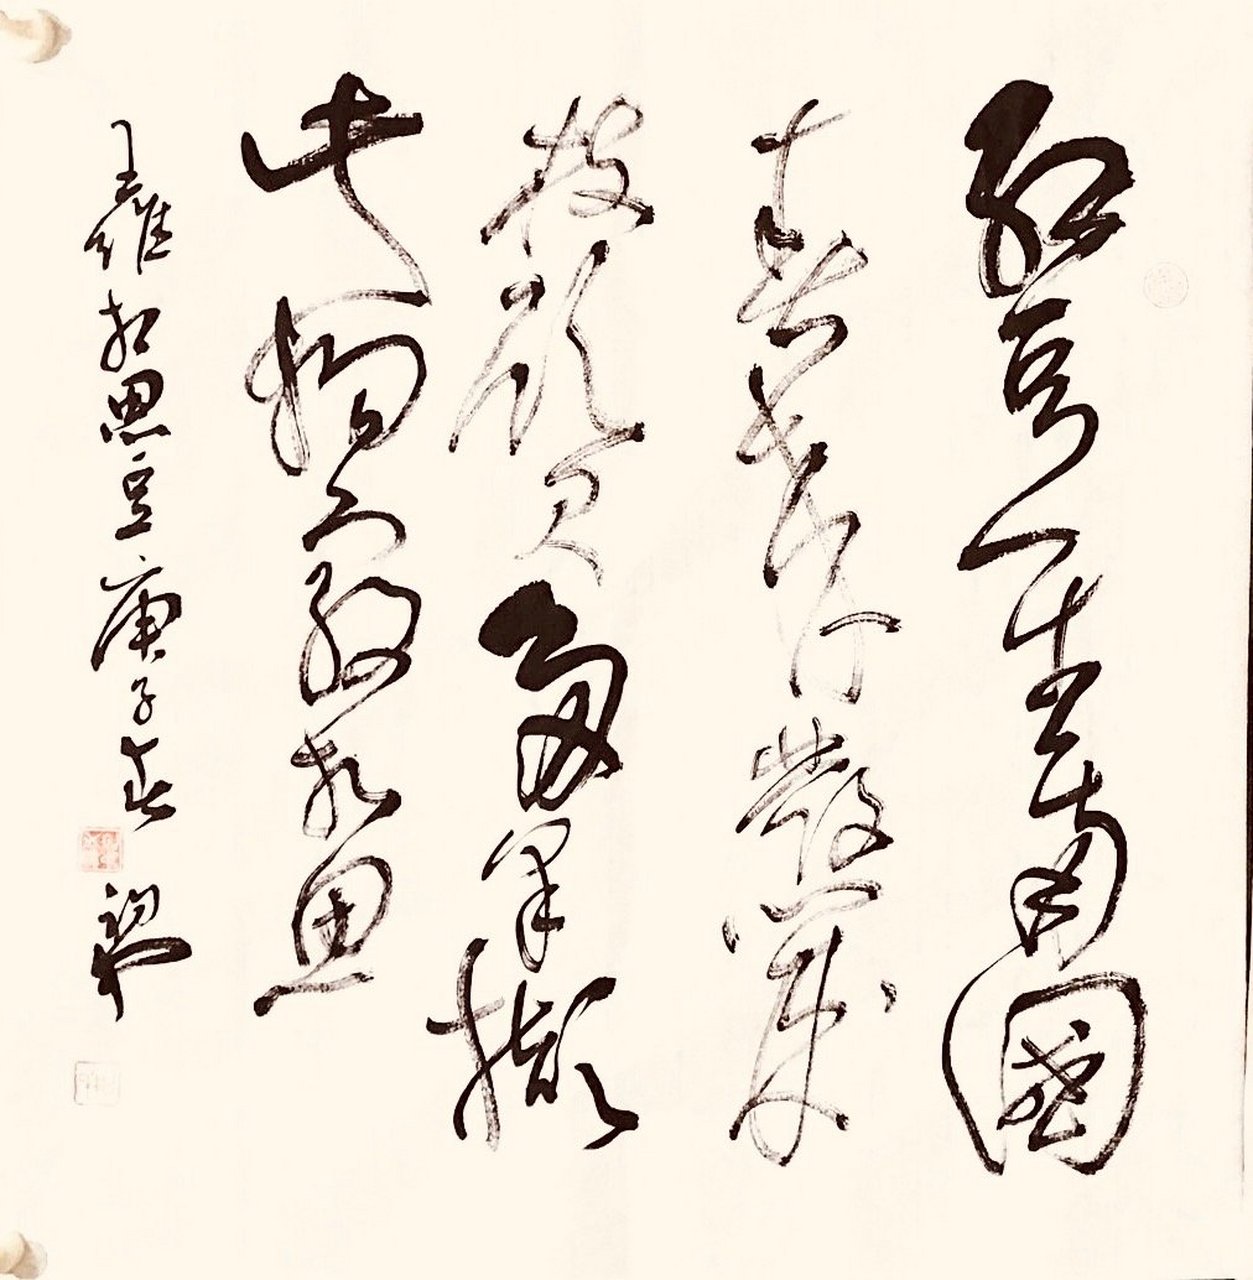 紅豆生南國
春來發幾
枝願君多采擷
此物最相思
王維相思豆庚子春